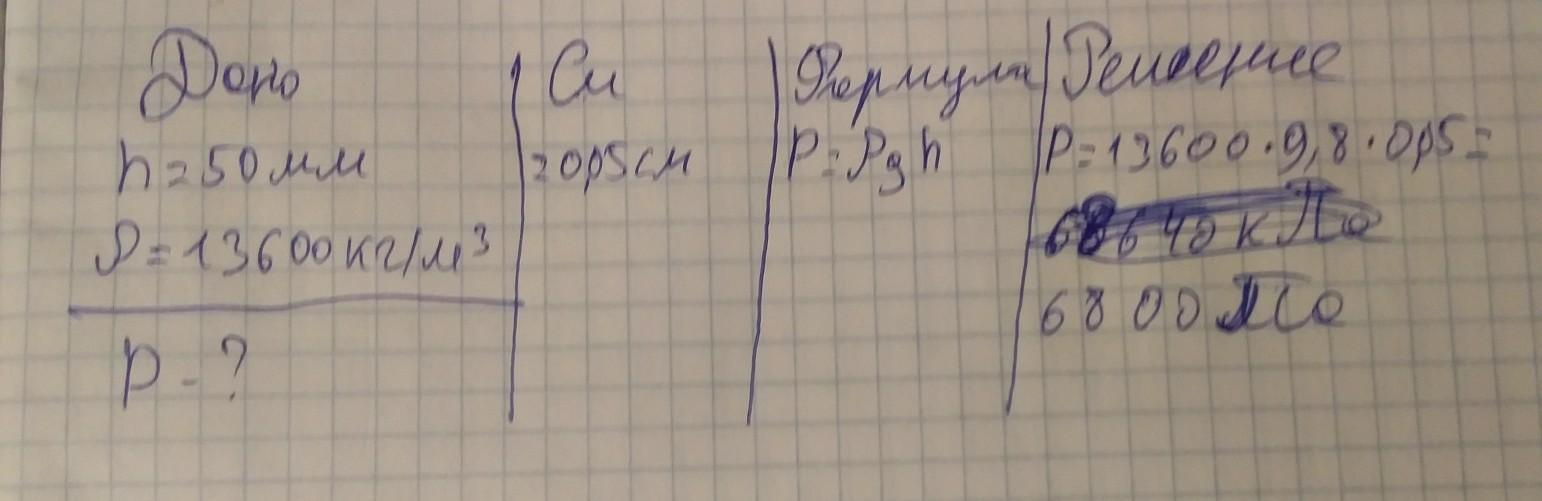 Дано
h = 50 мм
ρ = 13600 кг/м³
p - ?
Си
= 0,05 см
Формула
P = ρgh
Решение
P = 13600 · 9,8 · 0,05 =
6800